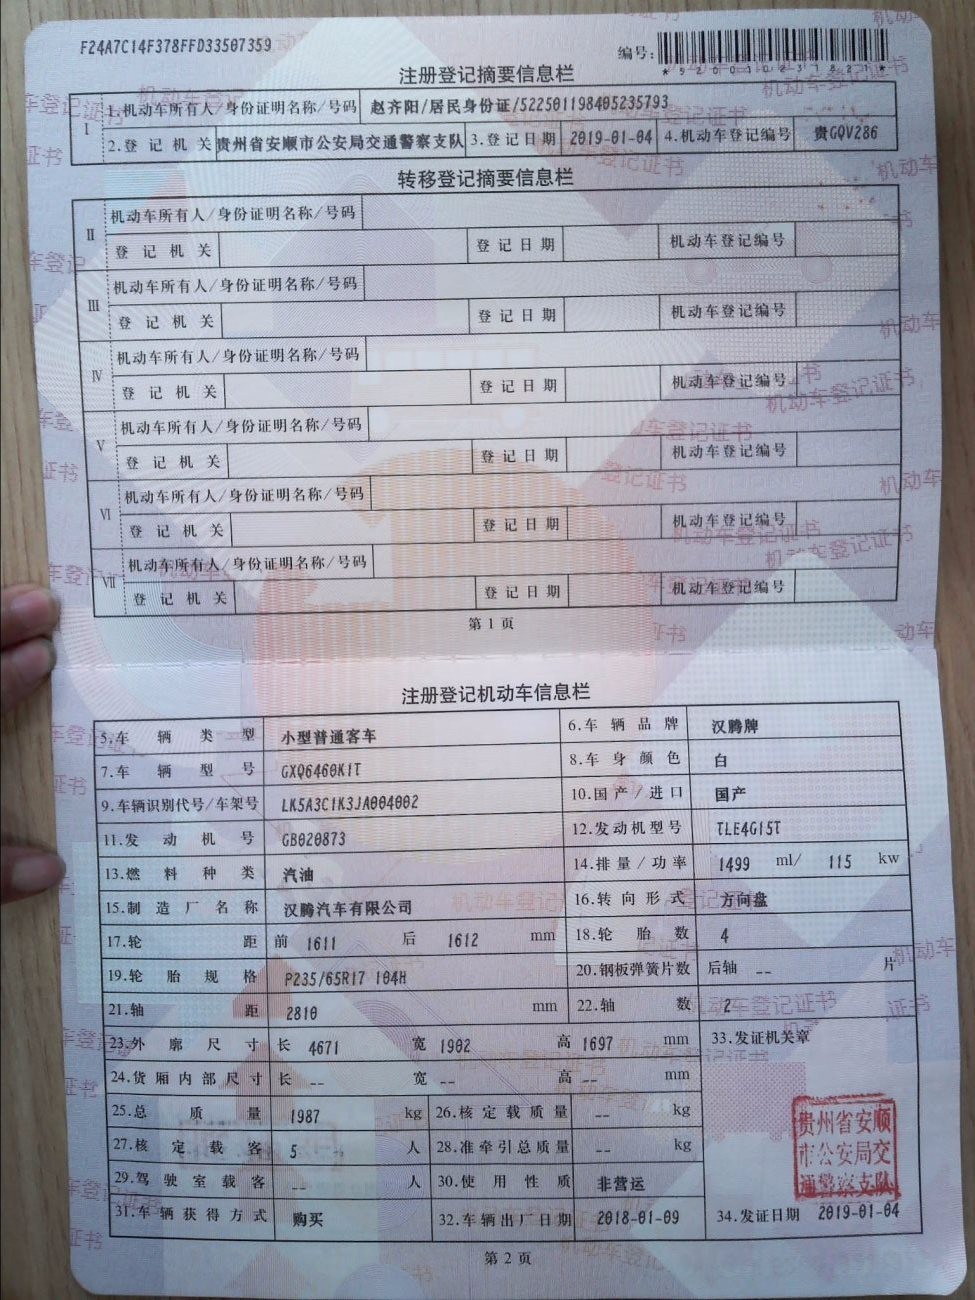 F24A7C14F378FFD33507359
编号:
*520010231821*
注册登记摘要信息栏
I
1.机动车所有人/身份证明名称/号码 赵齐阳/居民身份证/522501198405235793
2.登记机关 贵州省安顺市公安局交通警察支队 3.登记日期 2019-01-04 4.机动车登记编号 贵GQV286
转移登记摘要信息栏
II
机动车所有人/身份证明名称/号码
登记机关 登记日期 机动车登记编号
III
机动车所有人/身份证明名称/号码
登记机关 登记日期 机动车登记编号
IV
机动车所有人/身份证明名称/号码
登记机关 登记日期 机动车登记编号
V
机动车所有人/身份证明名称/号码
登记机关 登记日期 机动车登记编号
VI
机动车所有人/身份证明名称/号码
登记机关 登记日期 机动车登记编号
VII
机动车所有人/身份证明名称/号码
登记机关 登记日期 机动车登记编号
第1页
注册登记机动车信息栏
5.车辆类型 小型普通客车 6.车辆品牌 汉腾牌
7.车辆型号 GXQ6460K1T 8.车身颜色 白
9.车辆识别代号/车架号 LK5A3C1K3JA004002 10.国产/进口 国产
11.发动机号 GB020873 12.发动机型号 TLE4G15T
13.燃料种类 汽油 14.排量/功率 1499 ml/ 115 kw
15.制造厂名称 汉腾汽车有限公司 16.转向形式 方向盘
17.轮距 前 1611 后 1612 mm 18.轮胎数 4
19.轮胎规格 P235/65R17 104H 20.钢板弹簧片数 后轴 -- 片
21.轴距 2810 mm 22.轴数 2
23.外廓尺寸 长 4671 宽 1902 高 1697 mm 33.发证机关章
24.货厢内部尺寸 长 -- 宽 -- 高 -- mm
25.总质量 1987 kg 26.核定载质量 -- kg
27.核定载客 5 人 28.准牵引总质量 -- kg
贵州省安顺
市公安局交
通警察支队
29.驾驶室载客 -- 人 30.使用性质 非营运
31.车辆获得方式 购买 32.车辆出厂日期 2018-01-09 34.发证日期 2019-01-04
第2页